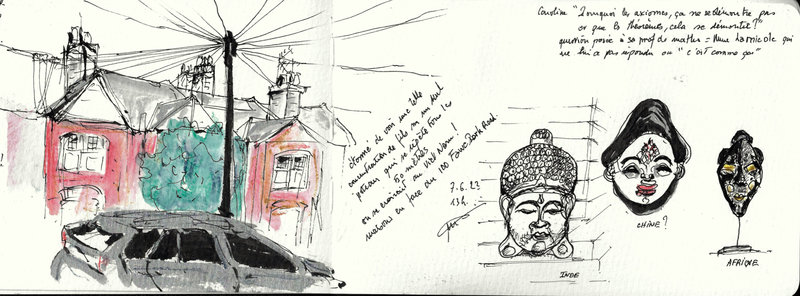 Caroline "Pourquoi les axiomes, ça ne se démontre pas
or que les théorèmes, cela se démontre ?"
question posée à sa prof de maths = Mme qui
ne lui a pas répondu ou "c'est comme ça"
étonné de voir une telle
concentration de fils sur un seul
poteau qui se répète tous les
50 mètres
on se croirait au Viet Nam !
maisons en face du 100 Park Road
7.6.23
13h.
INDE
CHINE ?
AFRIQUE